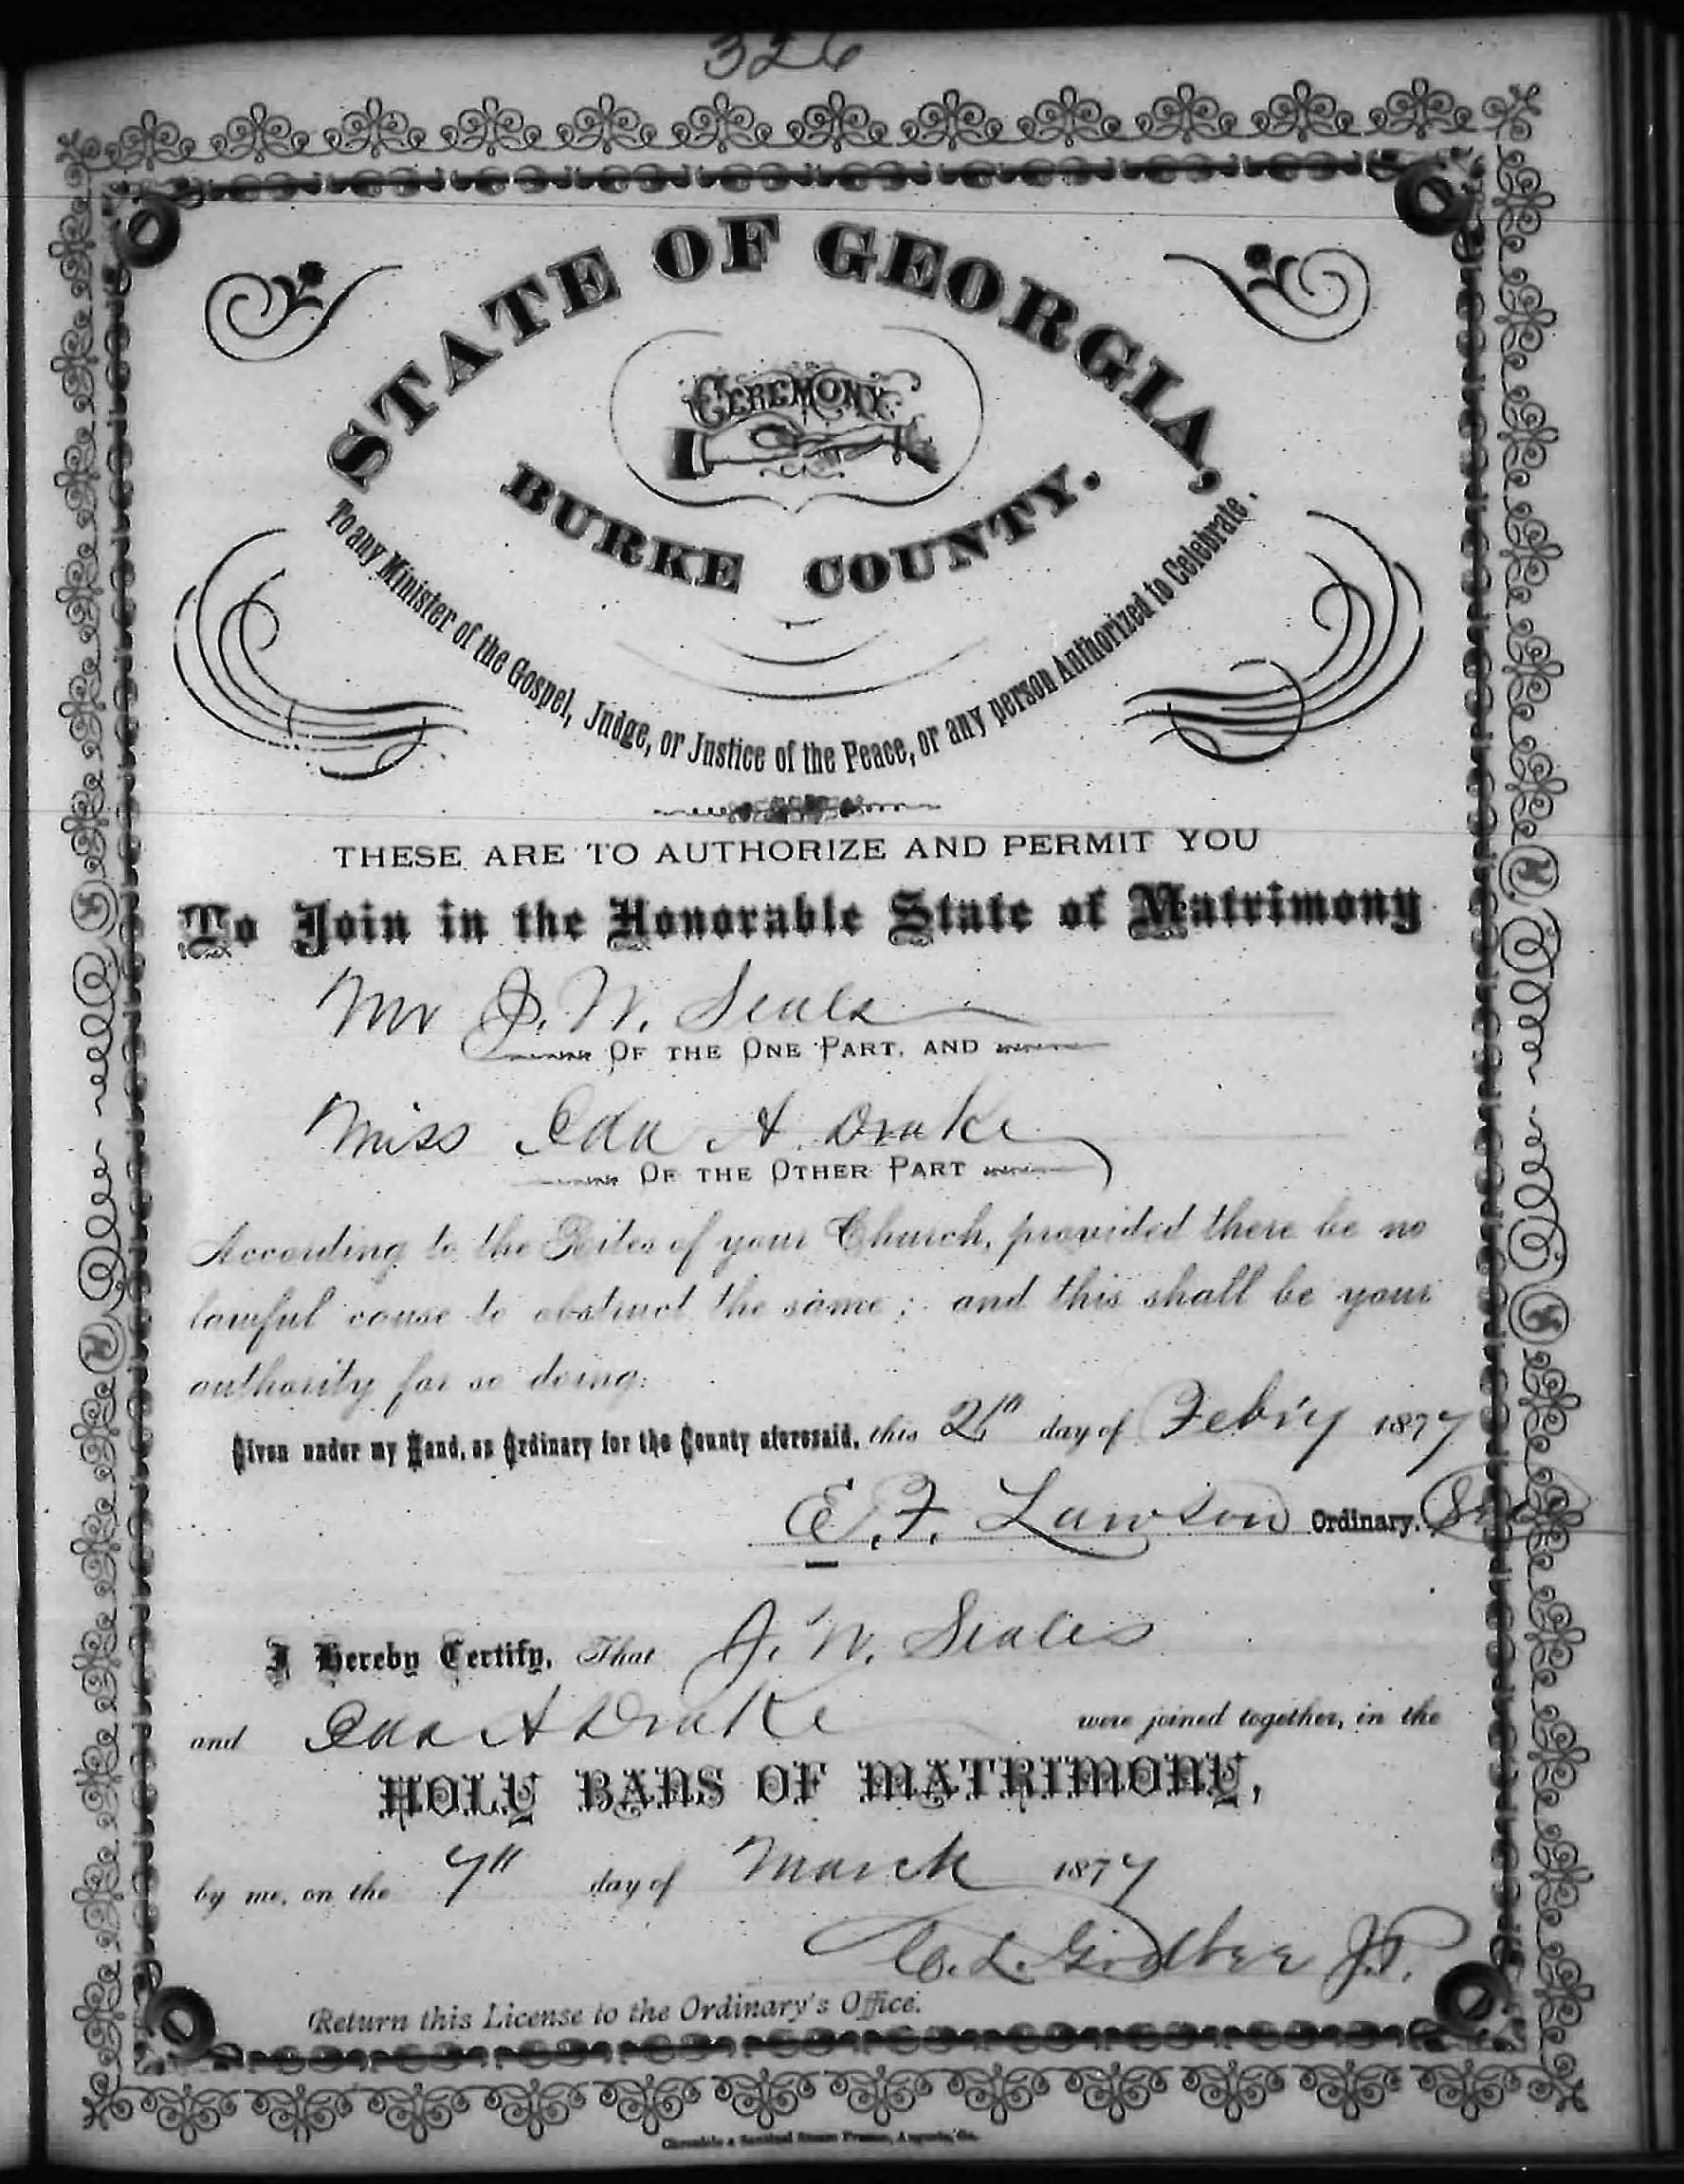 326
STATE OF GEORGIA,
CEREMONY
BURKE COUNTY.
To any Minister of the Gospel, Judge, or Justice of the Peace, or any person Authorized to Celebrate.
THESE ARE TO AUTHORIZE AND PERMIT YOU
To Join in the Honorable State of Matrimony
Mr J. W. Seals
OF THE ONE PART, AND
Miss Eda A Drake
OF THE OTHER PART
According to the Rites of your Church, provided there be no
lawful cause to obstruct the same; and this shall be your
authority for so doing.
Given under my Hand, as Ordinary for the County aforesaid, this day of Feb'ry 1877
E. F. Lawson Ordinary.
I Hereby Certify, That J. W. Seales
and Eda A Drake were joined together, in the
HOLY BANS OF MATRIMONY,
by me, on the 7th day of March 1877
C. L. Godbee J.P.
Return this License to the Ordinary's Office.
Chronicle & Sentinel Steam Presses, Augusta, Ga.